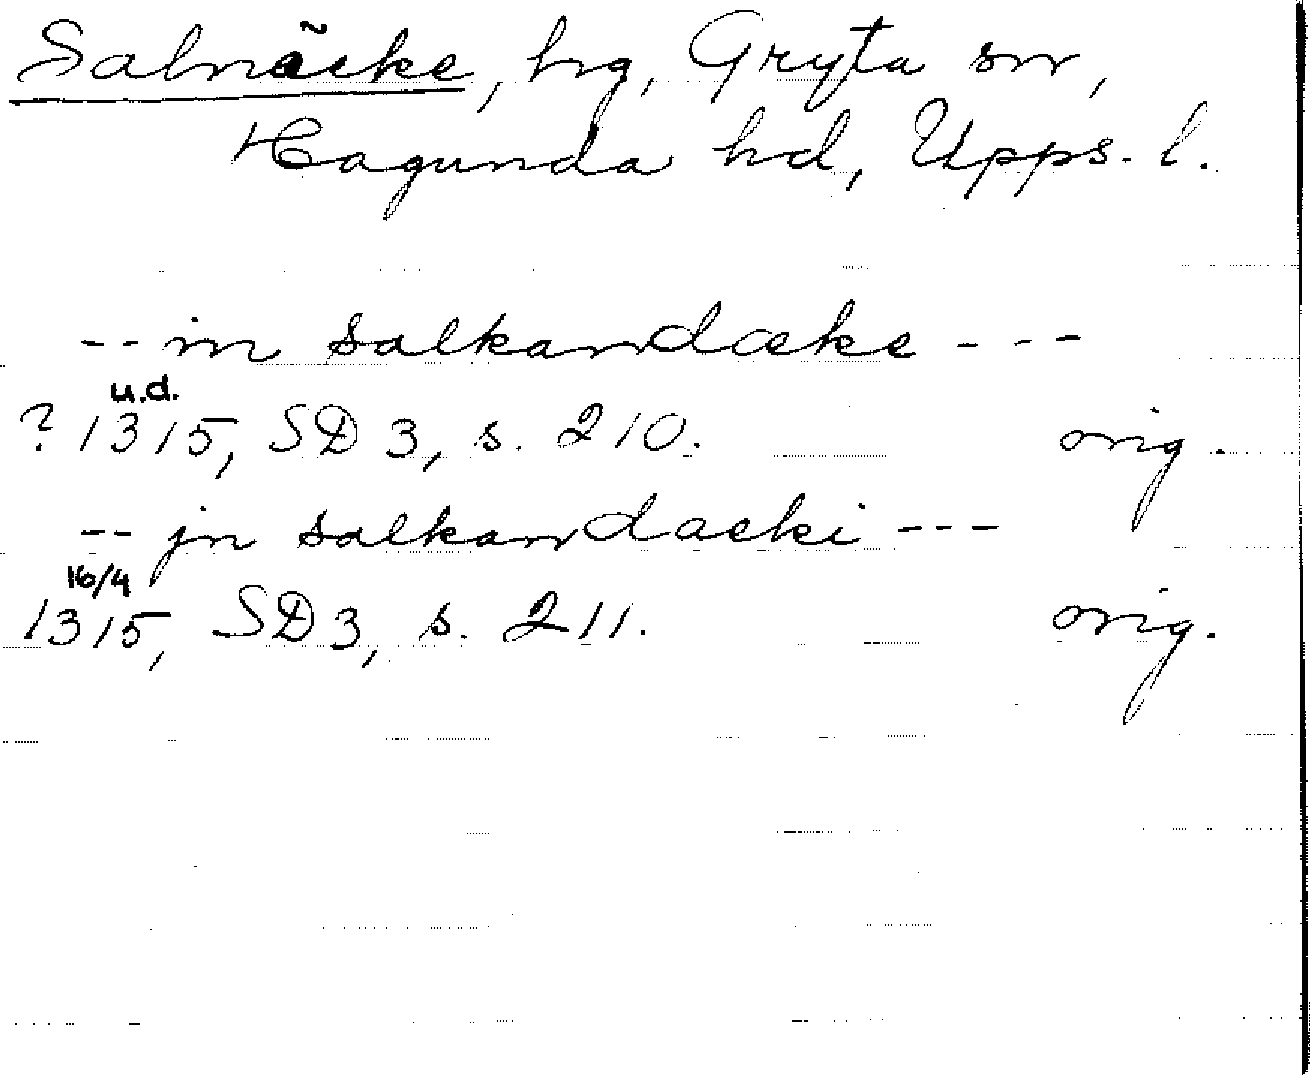 Salnäcke, hg, Gryta sn,
Hagunda hd, Upps. l.
-- in salkandæke ---
u.d.
? 1315, SD 3, s. 210. orig.
-- jn salkandaeki ---
16/4
1315, SD 3, s. 211. orig.